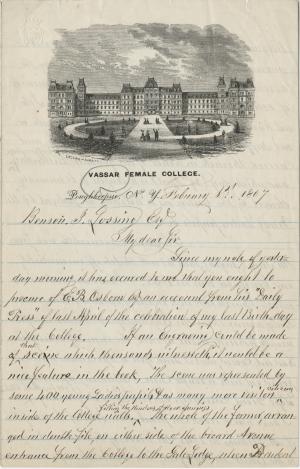 VASSAR FEMALE COLLEGE.
Poughkeepsie, N. Y. February 1st. 1867
Benson J. Lossing Esq
My dear Sir
Since my note of yester-
day morning, it has occurred to me that you ought to
procure of E.B. Osborn Esq an account from his "Daily
Press" of last April of the celebration of my last Birth day
at the College. If an Engraving could be made
of that scene which thousands witnessed, it would be a
nice feature in the book, The scene was represented by
some 400 young Ladies pupils & as many more visitors
inside of the College walls, the whole of the former arran-
ged in double file, on either side of the broad Avenue
entrance from the College to the Gate Lodge, when